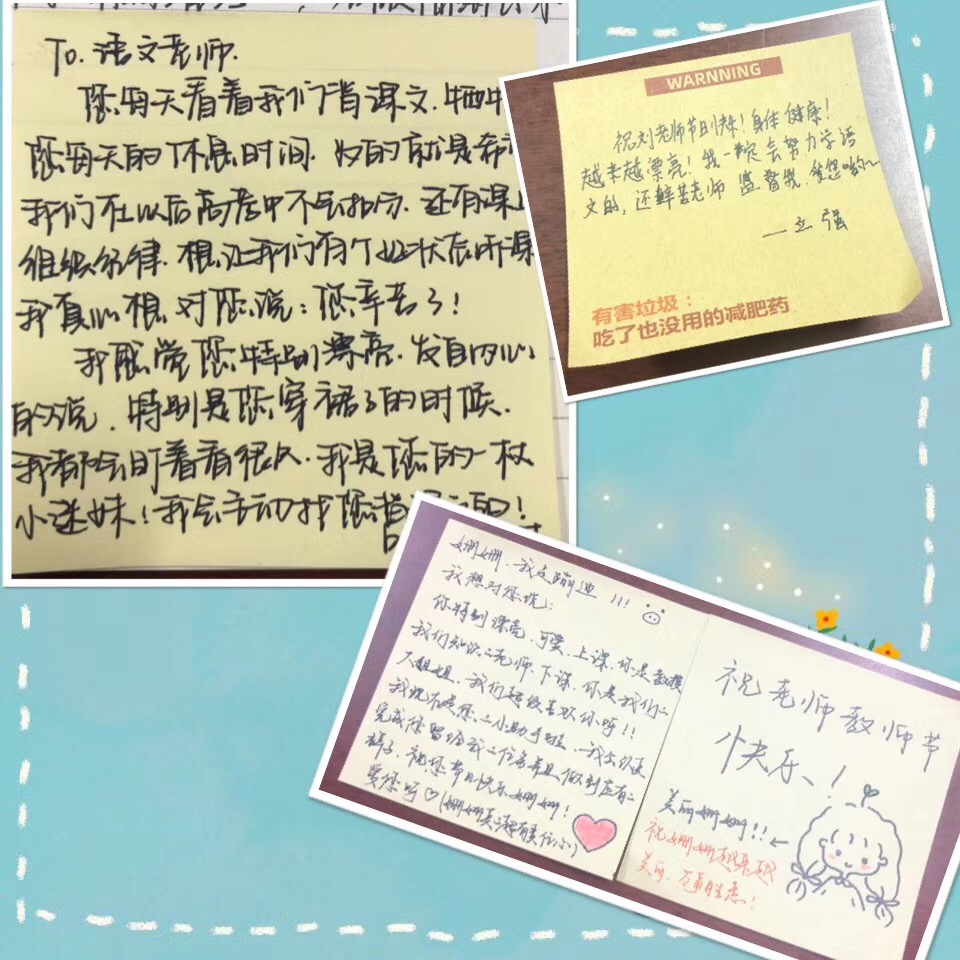 To. 语文老师.
您每天看着我们背课文. 牺牲
您每天的休息时间. 为的就是希
我们在以后高考中不会扣分. 还有课
组织纪律. 想让我们有个好状态听课
我真心想对您说：您辛苦了！
我感觉您特别漂亮. 发自内心
的说. 特别是您穿裙子的时候.
我都会盯着看很久. 我是您的一枚
小迷妹！我会主动找您背课文的！
WARNNING
祝刘老师节日快乐！身体健康！
越来越漂亮！我一定会努力学语
文的, 还辛苦老师监督我. 爱您哟~
—立强
有害垃圾：
吃了也没用的减肥药
姗姗. 我是蹦迪!!!
我想对您说：
你特别漂亮. 可爱. 上课. 你是教授
我们知识的老师. 下课. 你是我们的
大姐姐. 我们超级喜欢你呀!!
我现在是您的小助手啦. 我会认真
完成您留给我的任务并且做到应有的
样子. 祝您节日快乐. 姗姗！
爱您呀♡(姗姗真的超有责任心)
祝老师教师节
快乐！
美丽姗姗!!←
祝姗姗越来越
美丽. 万事胜意！